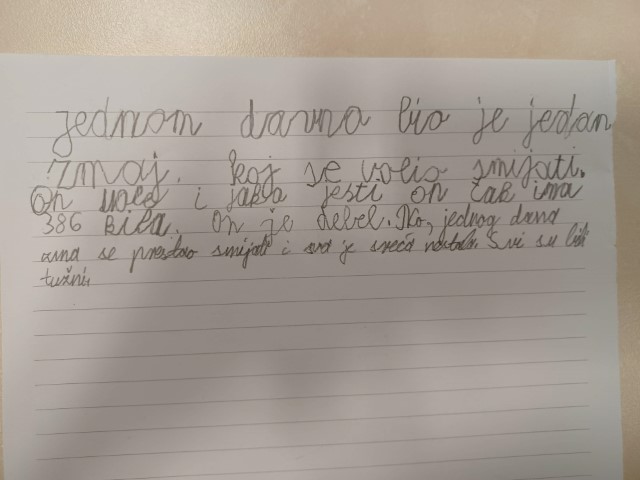 jednom davno bio je jedan
zmaj. koj se volio smijati.
On voli i jako jesti on čak ima
386 kila. On je debel. No, jednog dana
se prestao smijati i sva je sreća nestala. Svi su bili
tužni.